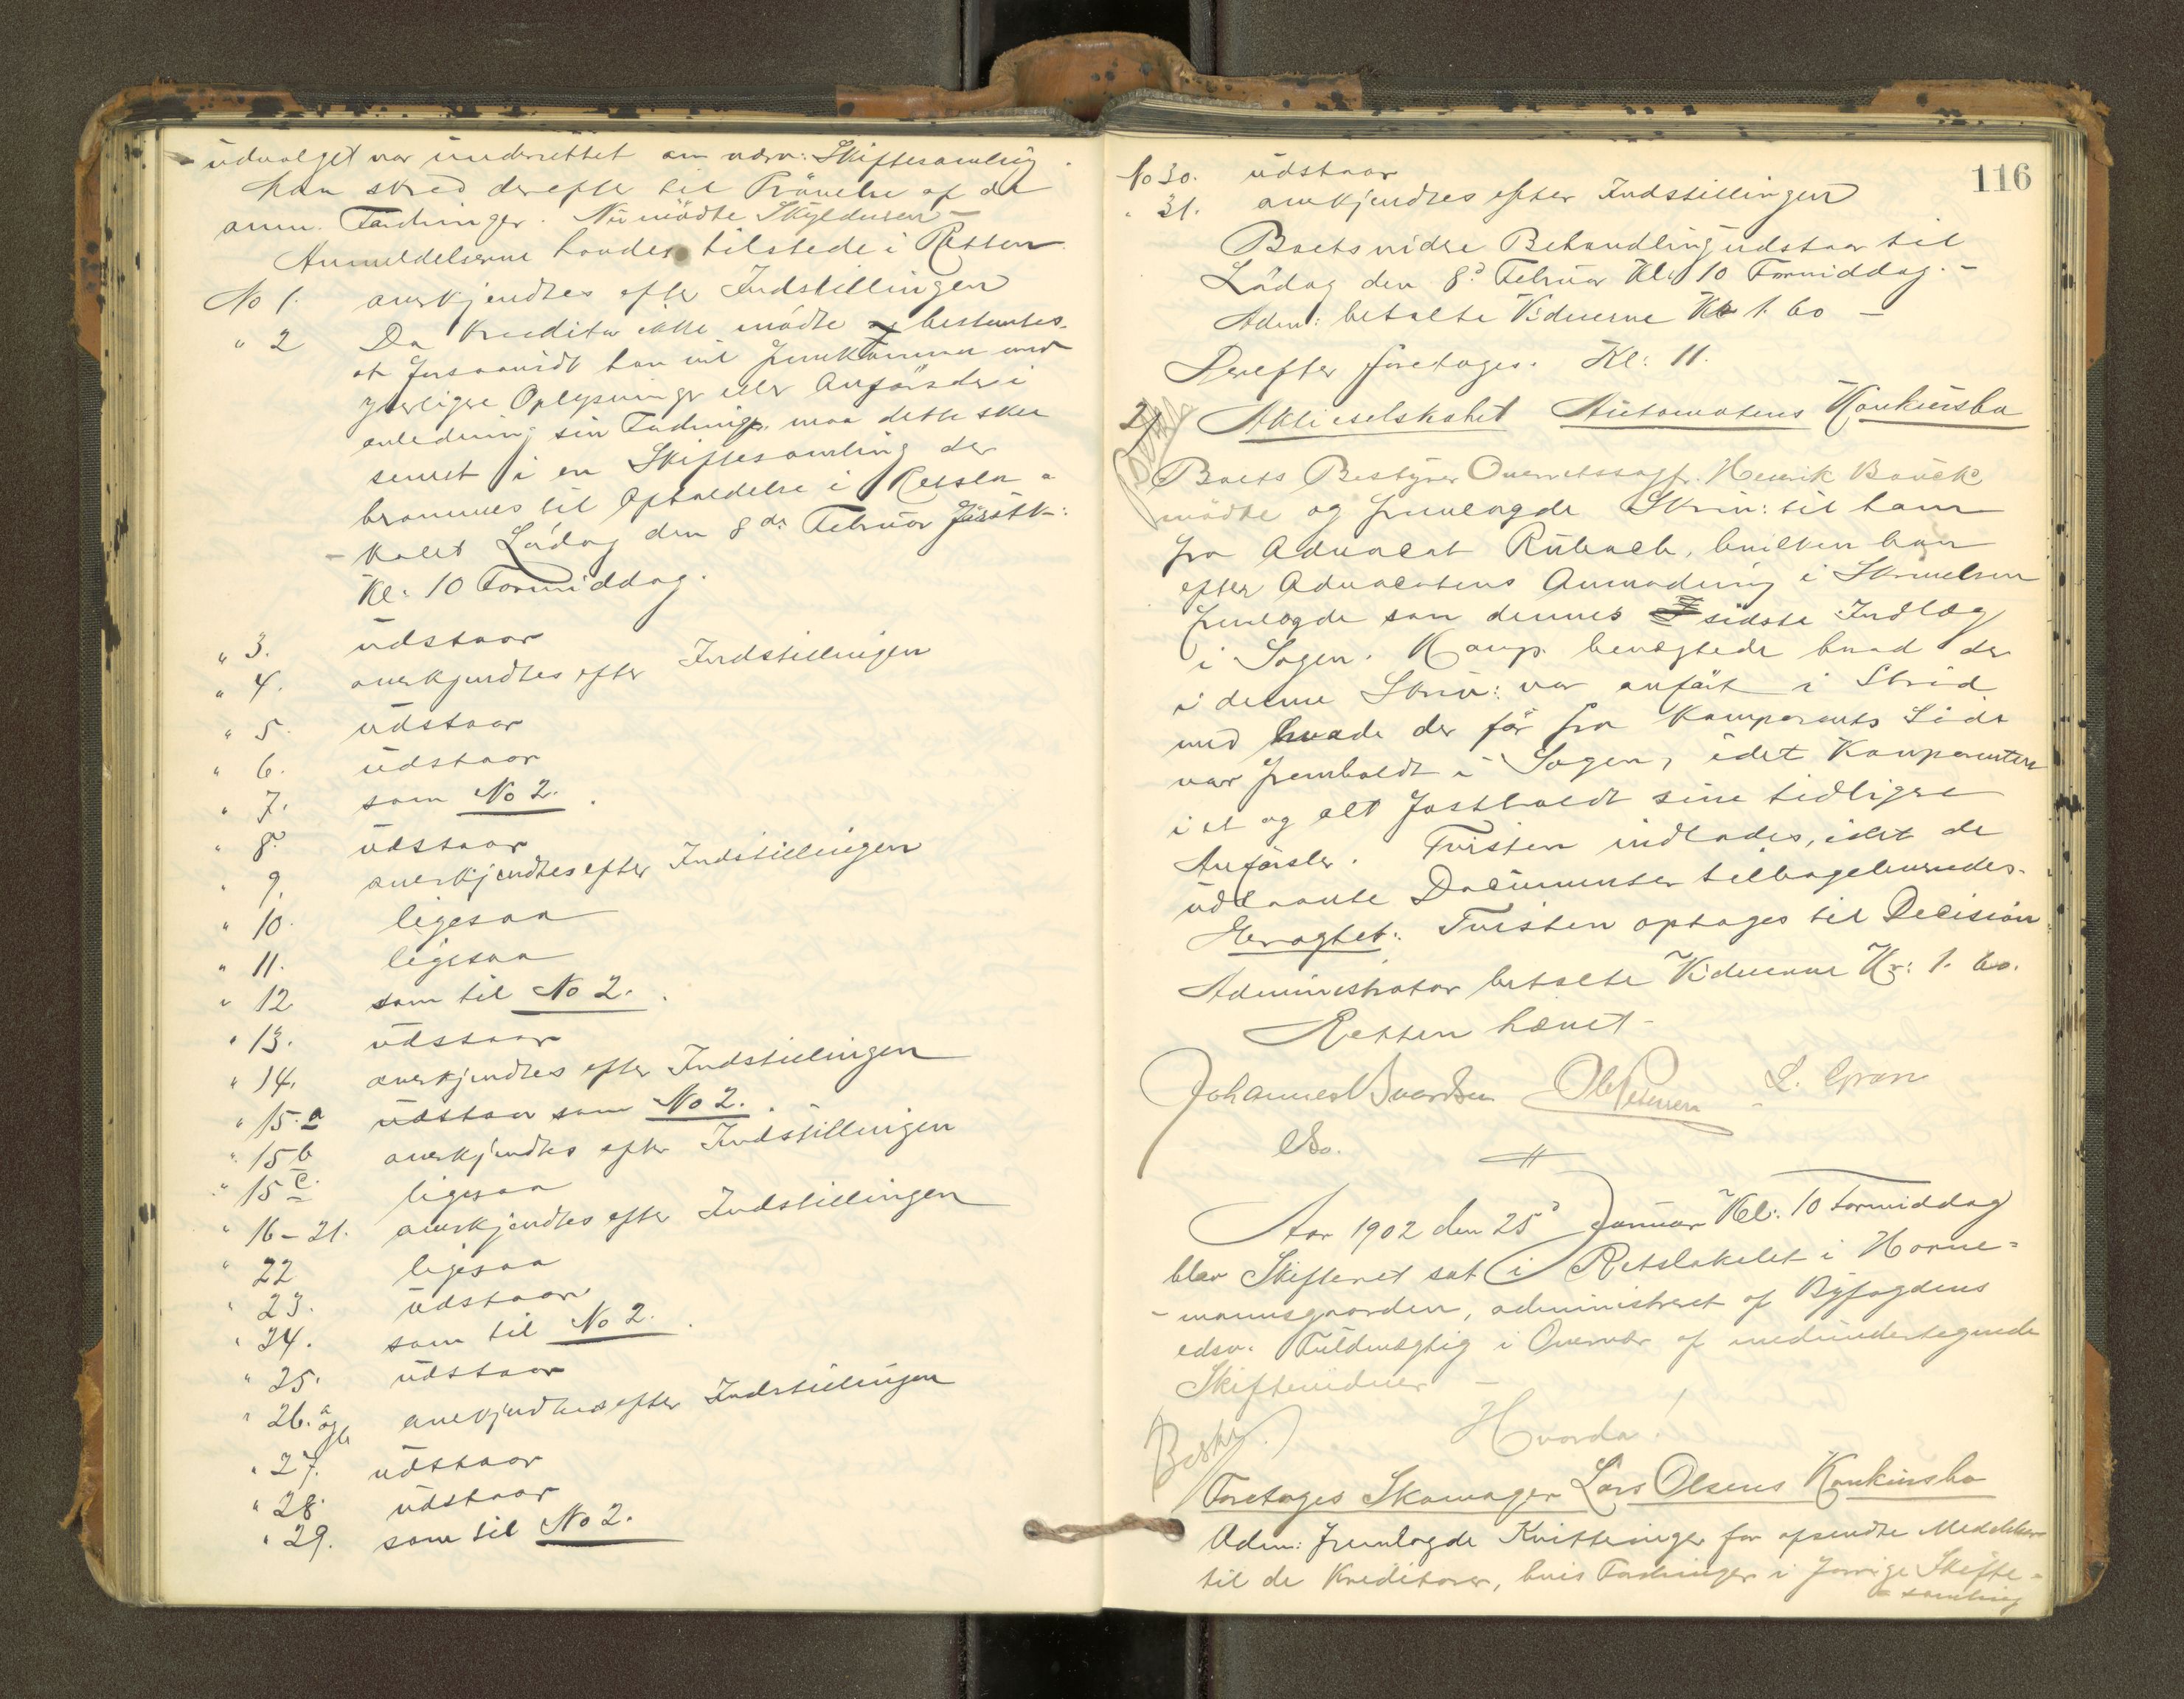 - udvalget var underrettet om nærv: Skiftesamling.
Man skred derefter til Prövelse af de
anm. Fordringer. Nu mödte Skyldneren -
Anmeldelserne havdes tilstede i Retten
No 1. anerkjendtes efter Indstillingen
" 2 Da Kreditor ikke mödte bestemtes
at forsaavidt han vil fremkomme med
yderligere Oplysninger eller Anförsler i
anledning sin Fordring, maa dette skee
senest i en Skiftesamling der
berammes til Afholdelse i Retslo-
- kalet Lördag den 8de Februar förstk:
Kl: 10 Formiddag.
" 3. udstaar
" 4. anerkjendtes efter Indstillingen
" 5. udstaar
" 6. udstaar
" 7. som No 2.
" 8. udstaar
" 9. anerkjendtes efter Indstillingen
" 10. ligesaa
" 11. ligesaa
" 12 som til No 2.
" 13. udstaar
" 14. anerkjendtes efter Indstillingen
" 15.a udstaar som No 2.
" 15b anerkjendtes efter Indstillingen
" 15c. ligesaa
" 16-21. anerkjendtes efter Indstillingen
" 22 ligesaa
" 23. udstaar
" 24. som til No 2.
" 25. udstaar
" 26. a og b anerkjendtes efter Indstillingen
" 27. udstaar
" 28. udstaar
" 29. som til No 2.
116
No 30. udstaar
" 31. anerkjendtes efter Indstillingen
Boets vidre Behandling udstaar til
Lödag den 8d Februar Kl. 10 Formiddag. -
Adm: betalte Vidnerne Kr 1.60 -
Derefter foretoges. Kl: 11.
2) Aktieselskabet Automatens Konkursbo
Boets Bestyrer Overretssagf. Henrik Bauck
mödte og fremlagde Skriv: til ham
fra Advocat Rubach, hvilken han
efter Advocatens Anmodning i Skrivelsen
fremlagde som dennes sidste Indlæg
i Sagen. Komp. benægtede hvad der
i denne Skriv: var anfört i Strid
med hvade der för fra Komparents Side
var fremholdt i Sagen, idet Komparenten
i et og alt fastholdt sine tidligere
Anförsler. Tvisten indlodes, idet de
udlaante Documenter tilbageleveredes.
Eragtet: Tvisten optages til Decision
Administrator betalte Vidnerne Kr: 1.60.
Retten hævet -
Ole Petersen L. Gran
Aar 1902 den 25d Januar Kl: 10 Formiddag
blev Skifteret sat i Retslokalet i Horne=
- mannsgaarden, administreret af Byfogdens
edsv. Fuldmægtig i Overvær af medundertegnede
Skiftevidner -
Hvorda!
Foretoges Skomager Lars Olsens Konkursbo
Adm: fremlagde Kvitteringer for afsendte Meddelelser
til de Kreditorer, hvis Fordringer i forrige Skifte-
- samling